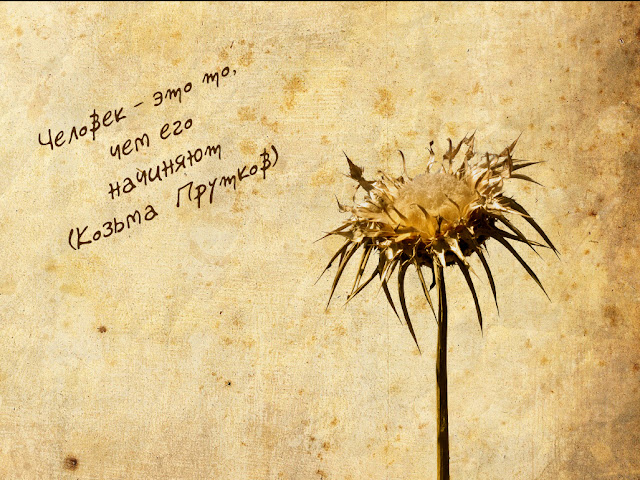 Человек - это то,
чем его
начиняют
(Козьма Прутков)